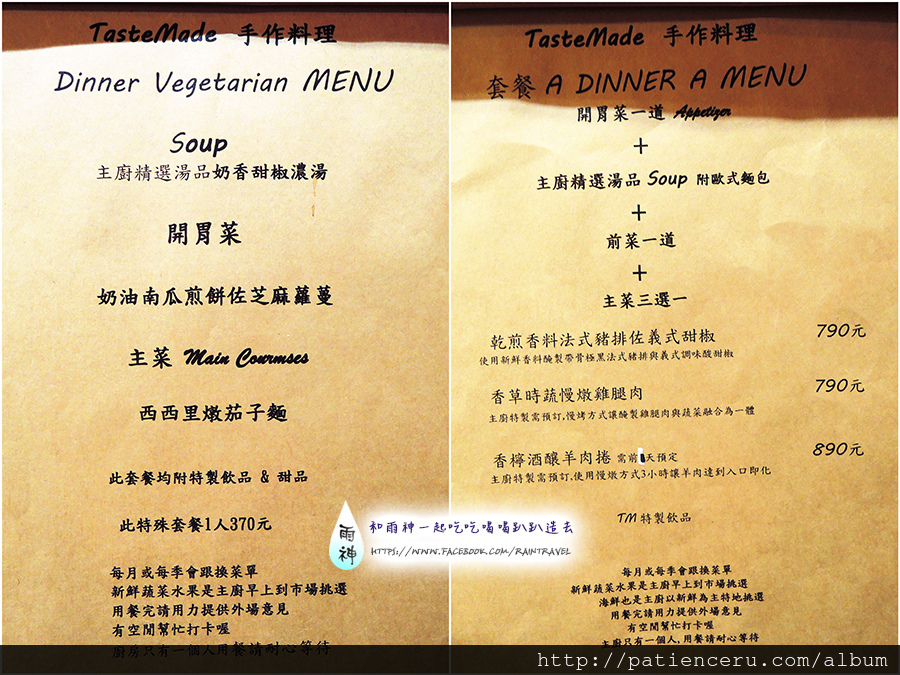 TasteMade 手作料理
Dinner Vegetarian MENU
Soup
主廚精選湯品奶香甜椒濃湯
開胃菜
奶油南瓜煎餅佐芝麻蘿蔓
主菜 Main Courmses
西西里燉茄子麵
此套餐均附特製飲品 & 甜品
此特殊套餐1人370元
每月或每季會跟換菜單
新鮮蔬菜水果是主廚早上到市場挑選
用餐完請用力提供外場意見
有空閒幫忙打卡喔
廚房只有一個人用餐請耐心等待
TasteMade 手作料理
套餐 A DINNER A MENU
開胃菜一道 Appetizer
+
主廚精選湯品 Soup 附歐式麵包
+
前菜一道
+
主菜三選一
乾煎香料法式豬排佐義式甜椒 790元
使用新鮮香料醃製帶骨極黑法式豬排與義式調味酸甜椒
香草時蔬慢燉雞腿肉 790元
主廚特製需預訂,慢烤方式讓醃製雞腿肉與蔬菜融合為一體
香檸酒釀羊肉捲 需前天預定 890元
主廚特製需預訂,使用慢燉方式3小時讓羊肉達到入口即化
TM特製飲品
每月或每季會跟換菜單
新鮮蔬菜水果是主廚早上到市場挑選
海鮮也是主廚以新鮮為主特地挑選
用餐完請用力提供外場意見
有空閒幫忙打卡喔
主廚只有一個人,用餐請耐心等待
雨神
和雨神一起吃吃喝喝趴趴造去
HTTPS://WWW.FACEBOOK.COM/RAINTRAVEL
http://patienceru.com/album